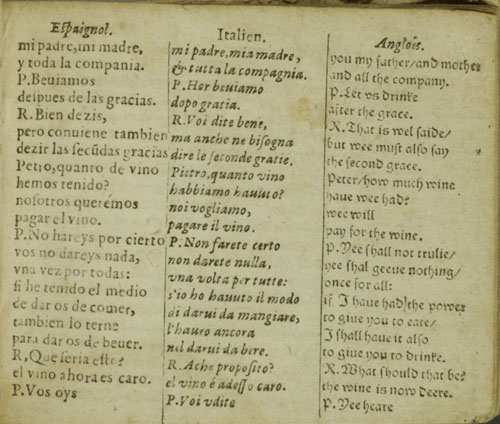 Espaignol.
mi padre, mi madre,
y toda la compania.
P. Beuiamos
despues de las gracias.
R. Bien dezis,
pero conuiene tambien
dezir las secũdas gracias
Petro, quanto de vino
hemos tenido?
nosotros queremos
pagar el vino.
P. No hareys por cierto
vos no dareys nada,
vna vez por todas:
si he tenido el medio
de dar os de comer,
tambien lo terne
para dar os de beuer.
R, Que seria esto?
el vino ahora es caro.
P. Vos oys
Italien.
mi padre, mia madre,
& tutta la compagnia.
P. Hor beuiamo
dopo gratia.
R. Voi dite bene,
ma anche ne bisogna
dire le seconde gratie.
Pietro, quanto vino
habbiamo hauuto?
noi vogliamo,
pagare il vino.
P. Non farete certo
non darete nulla,
vna volta per tutte:
s'io ho hauuto il modo
di darui da mangiare,
l'hauro ancora
nel darui da bere.
R. A che proposito?
el vino è adesso caro.
P. Voi vdite
Anglois.
you my father/and mother
and all the company.
P. Let vs drinke
after the grace.
R. That is wel saide/
but wee must also say
the second grace.
Peter/how much wine
haue wee had?
wee will
pay for the wine.
P. Yee shall not trulie/
yee shal geeue nothing/
once for all:
if I haue had the power
to giue you to eate/
I shall haue it also
to giue you to drinke.
R. What should that be?
the wine is now deere.
P. Yee heare